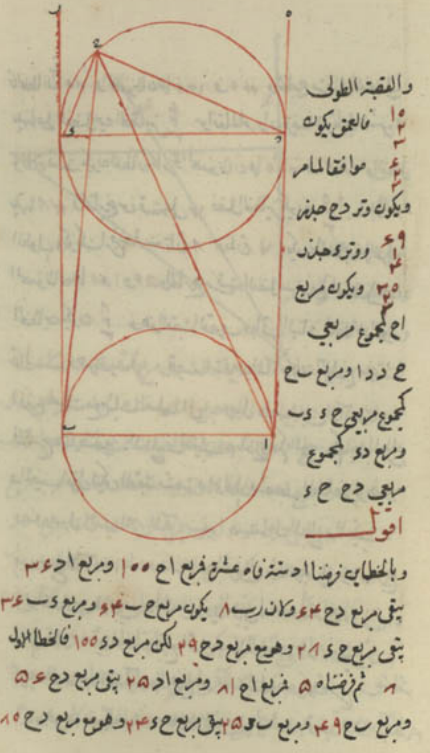 والقصبة الطولى
فالعمق يكون
موافقا لما مر
ويكون وتر د ح جذر
ووتر ء ح جذر
ويكون مربع
ا ح كمجموع مربعي
ح د د ا ومربع ب ح
كمجموع مربعي ح ء ء ب
ومربع د ء كمجموع
مربعي د ح ح ء
اقول
وبالخطاين فرضنا ا د ستة فاه عشرة فمربع ا ح ١٠٠ ومربع ا د ٣٦
يبقى مربع د ح ٦٤ ولان ر ب ٨ يكون مربع ح ب ٦٤ ومربع ء ب ٣٦
يبقى مربع ح ء ٢٨ وهو مع مربع د ح ٩٢ لكن مربع د ء ١٠٠ فالخطا الاول
٨ ثم فرضناه ٥ فمربع ا ح ٨١ ومربع ا د ٢٥ يبقى مربع د ح ٥٦
ومربع ب ح ٤٩ ومربع ب ء ٢٥ يبقى مربع ح ء ٢٤ وهو مع مربع د ح ٨٠